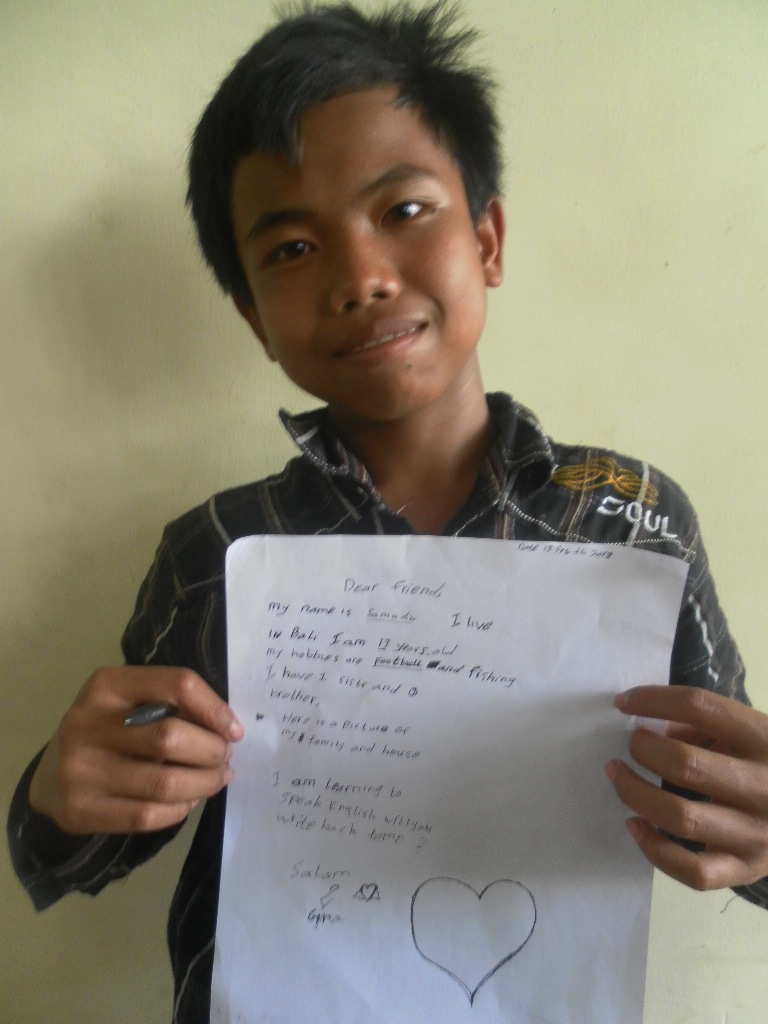 SOUL
Date 13 Feb th 2013
Dear friend,
my name is Samudin I live
in Bali I am 13 years, old
my hobbies are Football and Fishing
I have 1 sister and
brother.
Here is a picture of
my family and house
I am learning to
speak English will you
write back to me ?
Salam